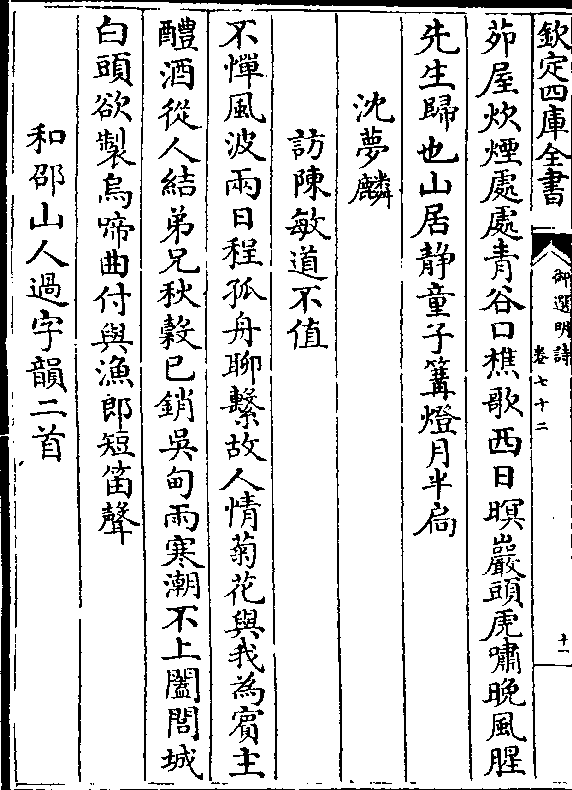 欽定四庫全書
御選明詩
卷七十二
十一
茆屋炊煙處處青谷口樵歌西日暝巖頭虎嘯晚風腥
先生歸也山居静童子篝燈月半扃
沈夢麟
訪陳敏道不值
不憚風波兩日程孤舟聊繫故人情菊花與我為賓主
醴酒從人結弟兄秋穀已銷吳甸雨寒潮不上闔閭城
白頭欲製烏啼曲付與漁郎短笛聲
和邵山人過字韻二首